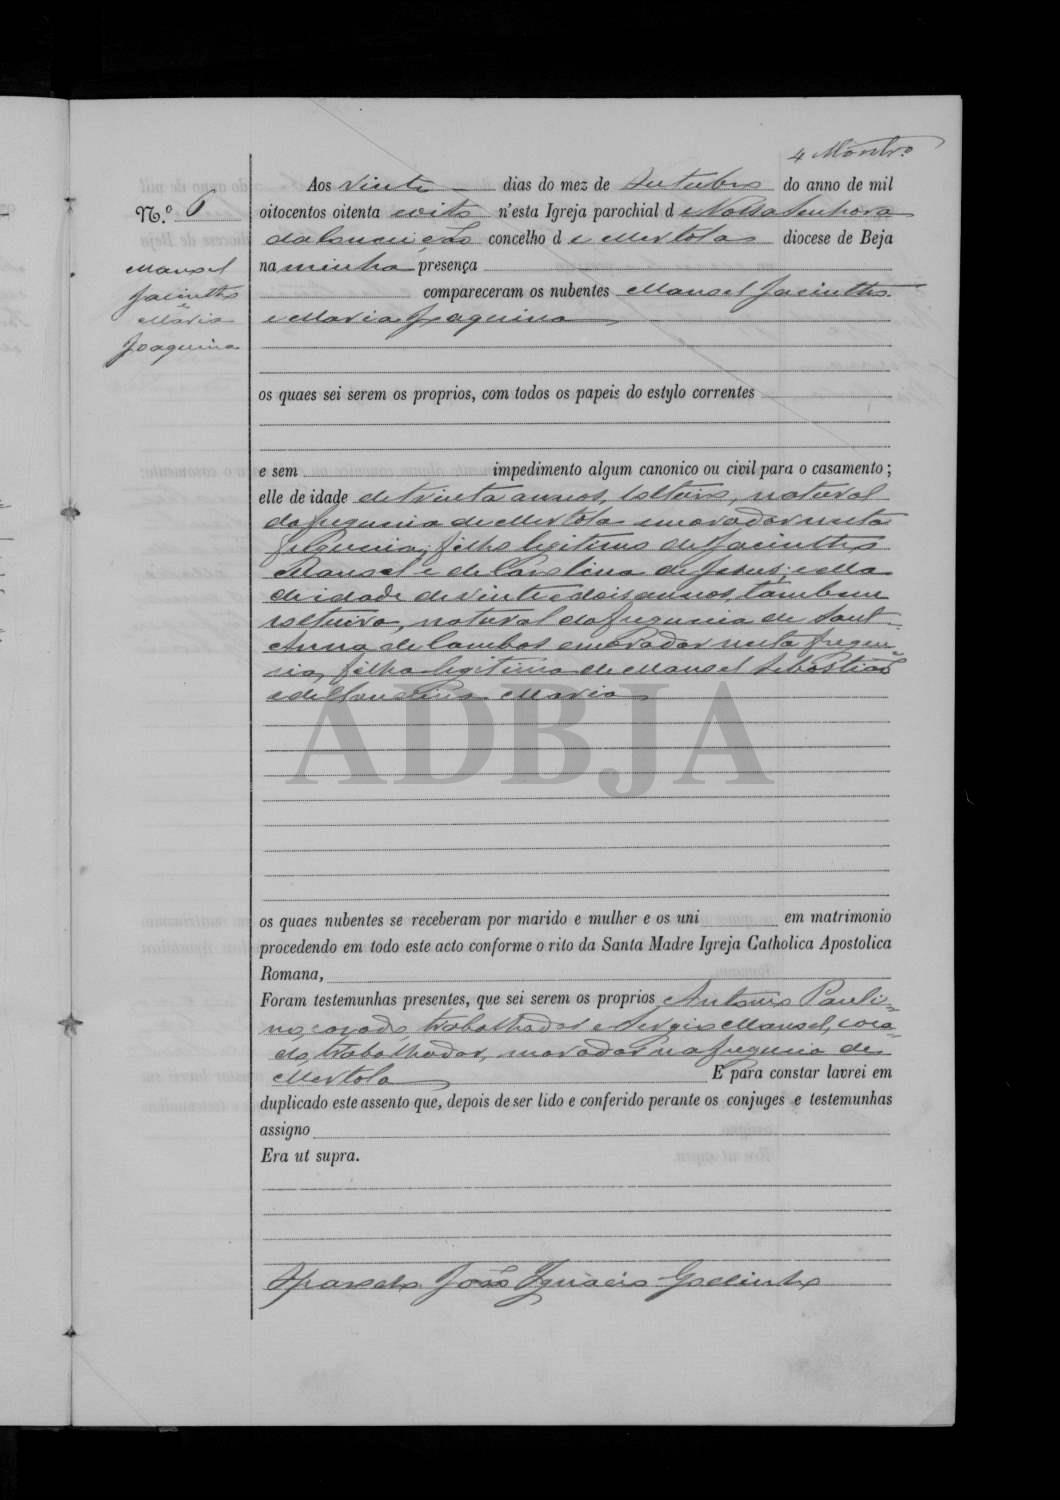 4 Montro
Aos vinte dias do mez de Outubro do anno de mil
N.º 6
oitocentos oitenta eoito n'esta Igreja parochial de Nossa Senhora
da Conceição concelho de Mertola diocese de Beja
na minha presença
compareceram os nubentes Manoel Jacintho
e Maria Joaquina
Manoel
Jacintho
e
Maria
Joaquina
os quaes sei serem os proprios, com todos os papeis do estylo correntes
e sem impedimento algum canonico ou civil para o casamento;
elle de idade de trinta annos, solteiro, natural
da freguesia de Mertola e morador nesta
freguesia, filho legitimo de Jacintho
Manoel e de Carolina de Jesus; e ella
de idade de vinte e dois annos, tambem
solteira, natural da freguesia de Sant-
Anna de Cambas e morador nesta fregue-
sia, filha legitima de Manoel Sebastião
e de Maria
ADBJA
os quaes nubentes se receberam por marido e mulher e os uni em matrimonio
procedendo em todo este acto conforme o rito da Santa Madre Igreja Catholica Apostolica
Romana,
Foram testemunhas presentes, que sei serem os proprios Antonio Pauli-
no, casado, trabalhador e Sergio Manoel, casa-
do, trabalhador, morador na freguesia de
Mertola E para constar lavrei em
duplicado este assento que, depois de ser lido e conferido perante os conjuges e testemunhas
assigno
Era ut supra.
O parocho João Ignacio Godinho